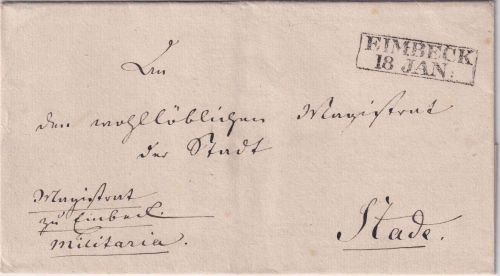 EIMBECK
18 JAN:
An
den wohllöblichen Magistrat
der Stadt
Stade.
Magistrat
zu Einbeck.
Militaria.